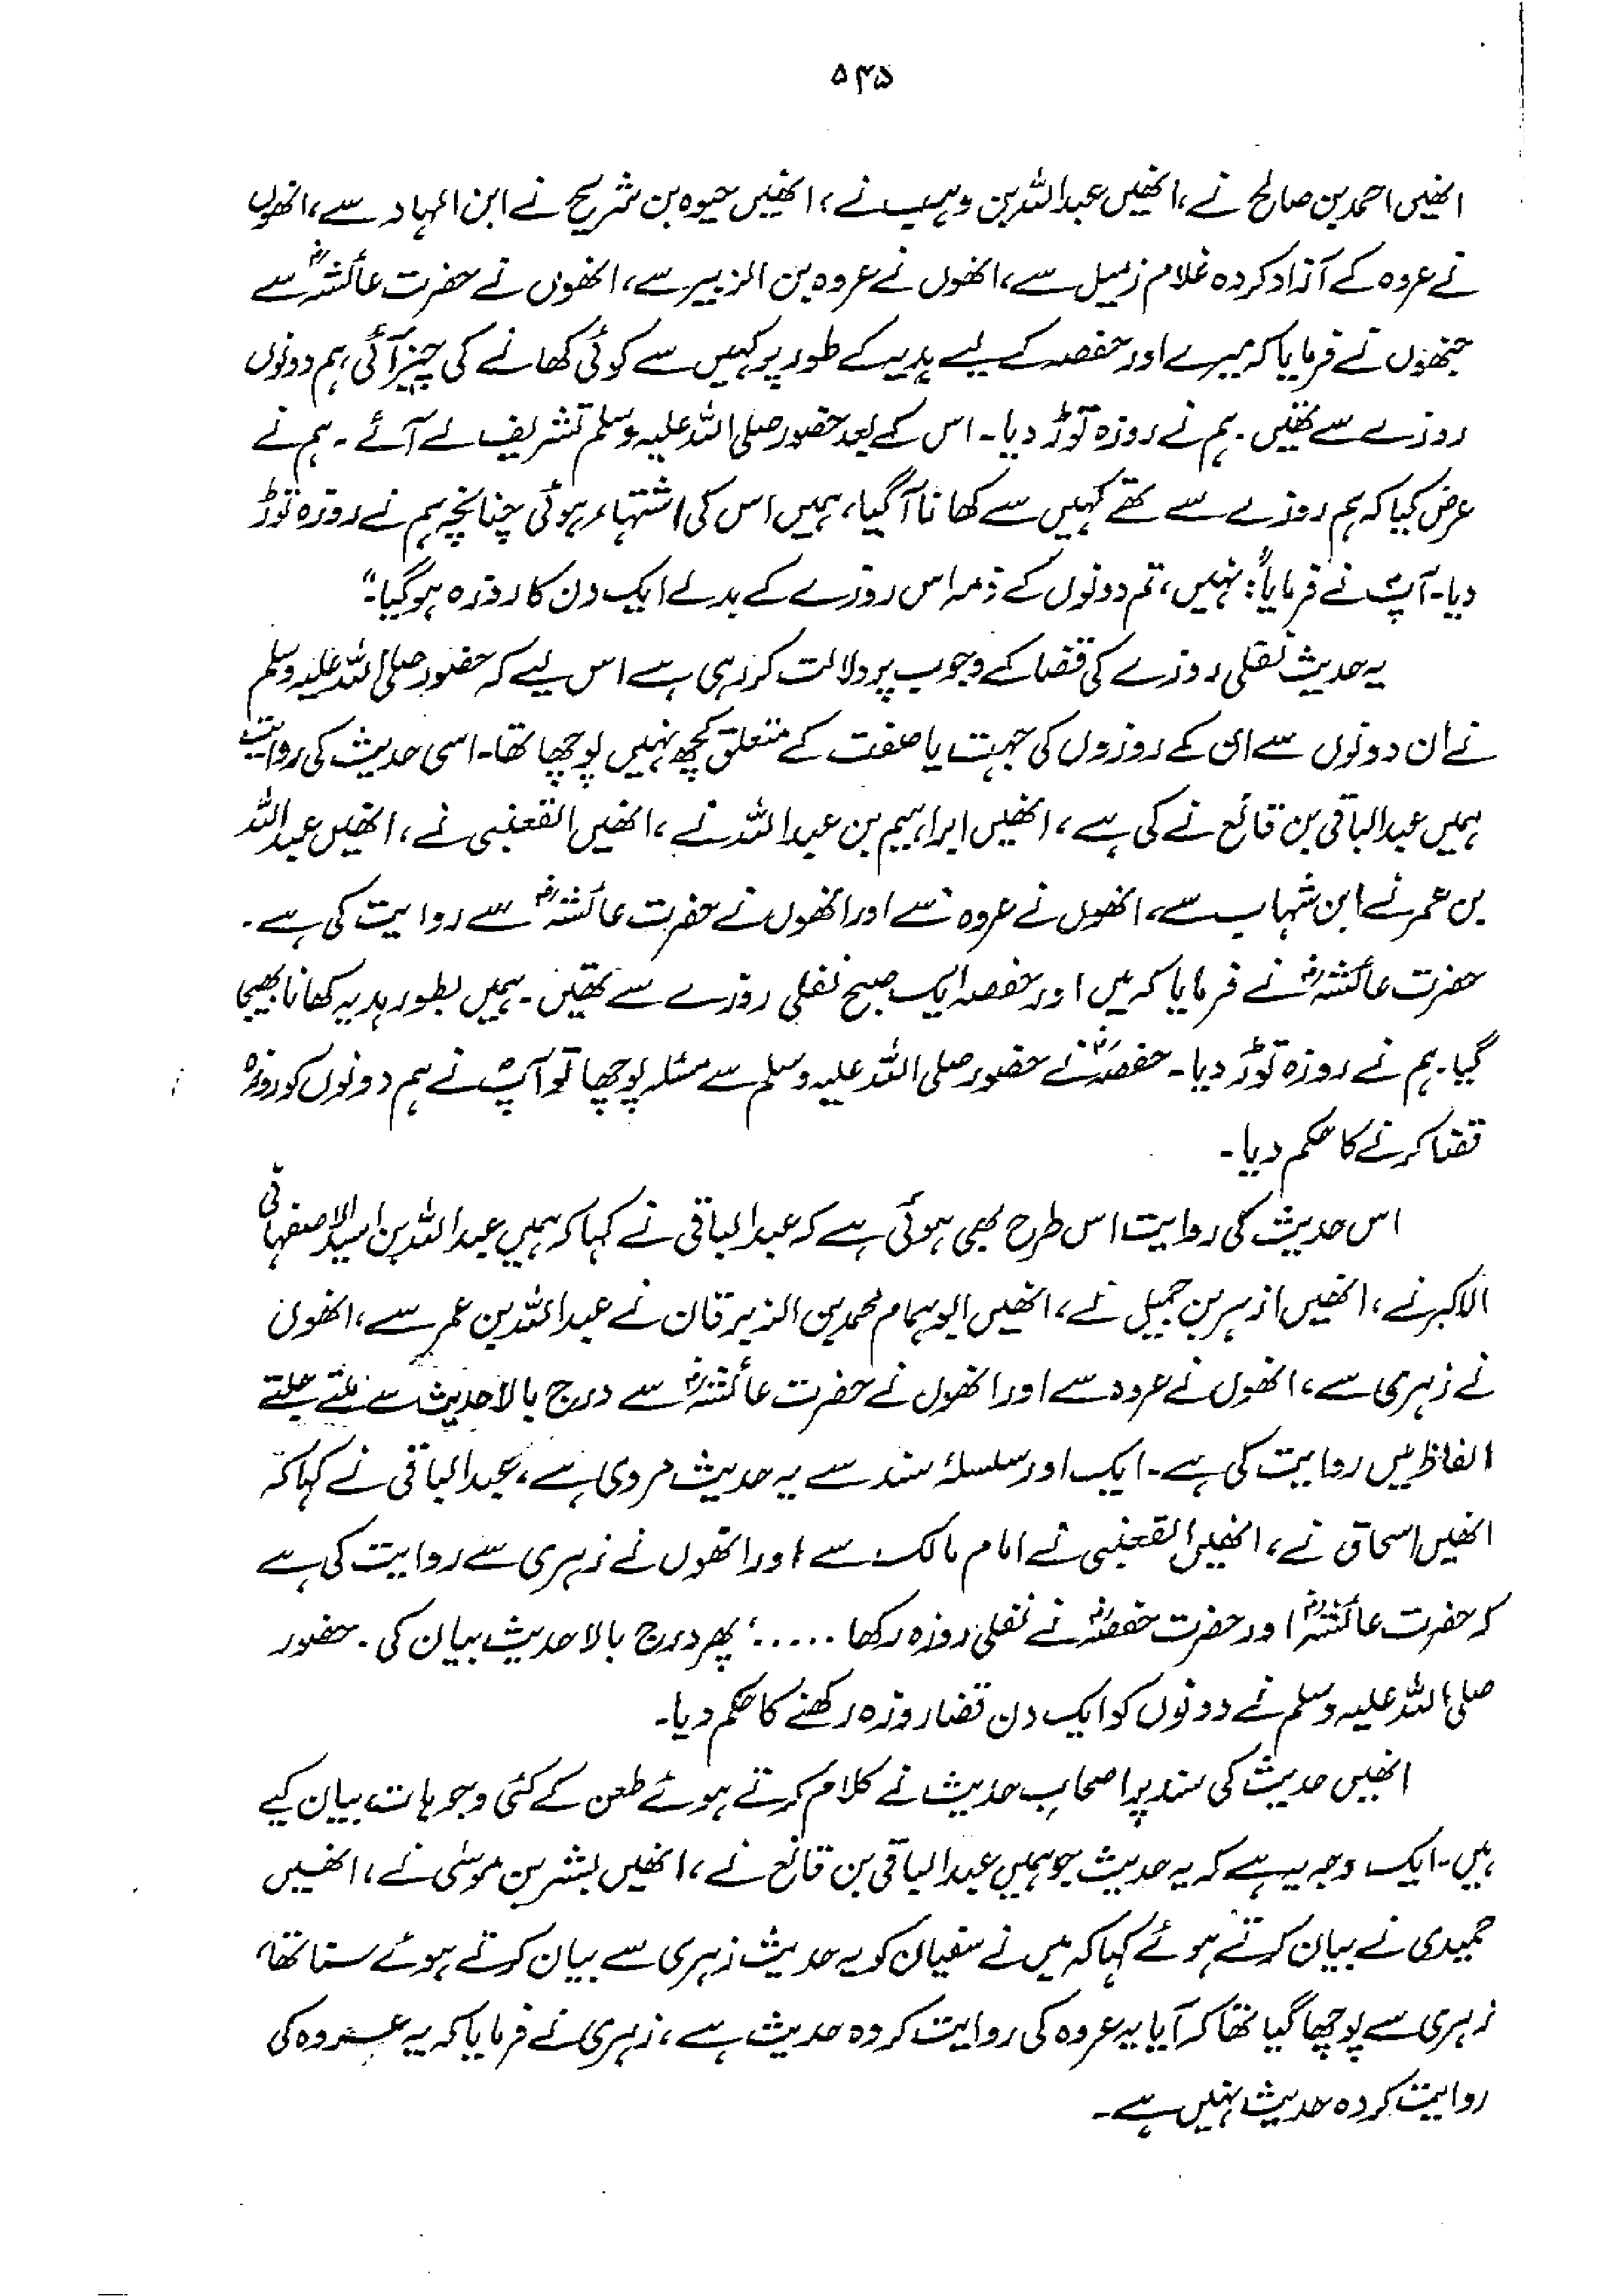 ۵۴۵
انھیں احمد بن صالح نے، انھیں عبداللہ بن وہب نے، انھیں حیوہ بن شریح نے ابن الہاد سے، انھوں
نے عروہ کے آزاد کردہ غلام زمیل سے، انھوں نے عروہ بن الزبیر سے، انھوں نے حضرت عائشہؓ سے
جنھوں نے فرمایا کہ میرے اور حفصہ کے لیے ہدیہ کے طور پر کہیں سے کوئی کھانے کی چیز آئی، ہم دونوں
روزے سے تھیں۔ ہم نے روزہ توڑ دیا۔ اس کے بعد حضور صلی اللہ علیہ وسلم تشریف لے آئے۔ ہم نے
عرض کیا کہ ہم روزے سے تھے کہیں سے کھانا آ گیا، ہمیں اس کی اشتہاء ہوئی چنانچہ ہم نے روزہ توڑ
دیا۔ آپؐ نے فرمایا: "نہیں، تم دونوں کے ذمہ اس روزے کے بدلے ایک دن کا روزہ ہو گیا۔"
یہ حدیث نفلی روزے کی قضا کے وجوب پر دلالت کر رہی ہے اس لیے کہ حضور صلی اللہ علیہ وسلم
نے ان دونوں سے ان کے روزوں کی جہت یا صفت کے متعلق کچھ نہیں پوچھا تھا۔ اسی حدیث کی روایت
ہمیں عبدالباقی بن قانع نے کی ہے، انھیں ابراہیم بن عبداللہ نے، انھیں القعنبی نے، انھیں عبداللہ
بن عمر نے ابن شہاب سے، انھوں نے عروہ سے اور انھوں نے حضرت عائشہؓ سے روایت کی ہے۔
حضرت عائشہؓ نے فرمایا کہ میں اور حفصہ ایک صبح نفلی روزے سے تھیں۔ ہمیں بطور ہدیہ کھانا بھیجا
گیا۔ ہم نے روزہ توڑ دیا۔ حفصہؓ نے حضور صلی اللہ علیہ وسلم سے مسئلہ پوچھا تو آپؐ نے ہم دونوں کو روزہ
قضا کرنے کا حکم دیا۔
اس حدیث کی روایت اس طرح بھی ہوئی ہے کہ عبدالباقی نے کہا کہ ہمیں عبداللہ بن اسید الاصفہانی
الاکبر نے، انھیں ازہر بن جمیل نے، انھیں ابو ہمام محمد بن الزبرقان نے عبداللہ بن عمر سے، انھوں
نے زہری سے، انھوں نے عروہ سے اور انھوں نے حضرت عائشہؓ سے درج بالا حدیث سے ملتے جلتے
الفاظ میں روایت کی ہے۔ ایک اور سلسلۂ سند سے یہ حدیث مروی ہے، عبدالباقی نے کہا کہ
انھیں اسحاق نے، انھیں القعنبی نے امام مالک سے اور انھوں نے زہری سے روایت کی ہے
کہ حضرت عائشہؓ اور حضرت حفصہؓ نے نفلی روزہ رکھا ۔۔۔۔۔' پھر درج بالا حدیث بیان کی۔ حضور
صلی اللہ علیہ وسلم نے دونوں کو ایک دن قضا روزہ رکھنے کا حکم دیا۔
انھیں حدیث کی سند پر اصحاب حدیث نے کلام کرتے ہوئے طعن کے کئی وجوہات بیان کیے
ہیں۔ ایک وجہ یہ ہے کہ یہ حدیث جو ہمیں عبدالباقی بن قانع نے، انھیں بشر بن موسیٰ نے، انھیں
حمیدی نے بیان کرتے ہوئے کہا کہ میں نے سفیان کو یہ حدیث زہری سے بیان کرتے ہوئے سنا تھا،
زہری سے پوچھا گیا تھا کہ آیا یہ عروہ کی روایت کردہ حدیث ہے، زہری نے فرمایا کہ یہ عروہ کی
روایت کردہ حدیث نہیں ہے۔